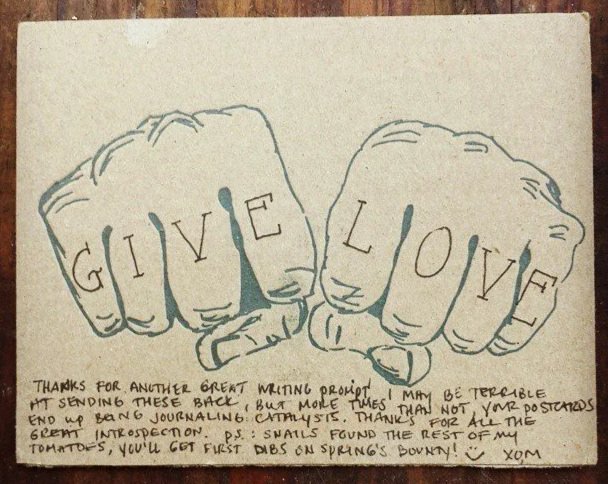 GIVE LOVE
THANKS FOR ANOTHER GREAT WRITING PROMPT! I MAY BE TERRIBLE
AT SENDING THESE BACK, BUT MORE TIMES THAN NOT, YOUR POSTCARDS
END UP BEING JOURNALING CATALYSTS. THANKS FOR ALL THE
GREAT INTROSPECTION. PS: SNAILS FOUND THE REST OF MY
TOMATOES, YOU'LL GET FIRST DIBS ON SPRING'S BOUNTY! XO,M